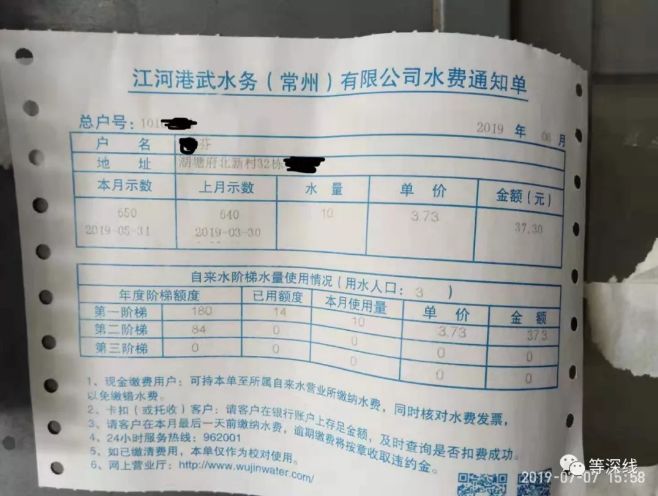 江河港武水务(常州)有限公司水费通知单
总户号:101
2019 年 06 月
户名 芬
地址 湖塘府北新村32栋
本月示数 上月示数 水量 单价 金额(元)
650 640 10 3.73 37.30
2019-05-31 2019-03-30
自来水阶梯水量使用情况(用水人口:3 )
年度阶梯额度 已用额度 本月使用量 单价 金额
第一阶梯 180 14 10 3.73 37.3
第二阶梯 84 0 0 0 0
第三阶梯 0 0 0 0 0
1、现金缴费用户:可持本单至所属自来水营业所缴纳水费,同时核对水费发票,
以免缴错水费。
2、卡扣(或托收)客户:请客户在银行账户上存足金额,及时查询是否扣费成功。
3、请客户在本月最后一天前缴纳水费,逾期缴费将按章收取违约金。
4、24小时服务热线:962001
5、如已缴清费用,本单仅作为校对使用。
6、网上营业厅:http://www.wujinwater.com/
等深线
2019-07-07 15:58